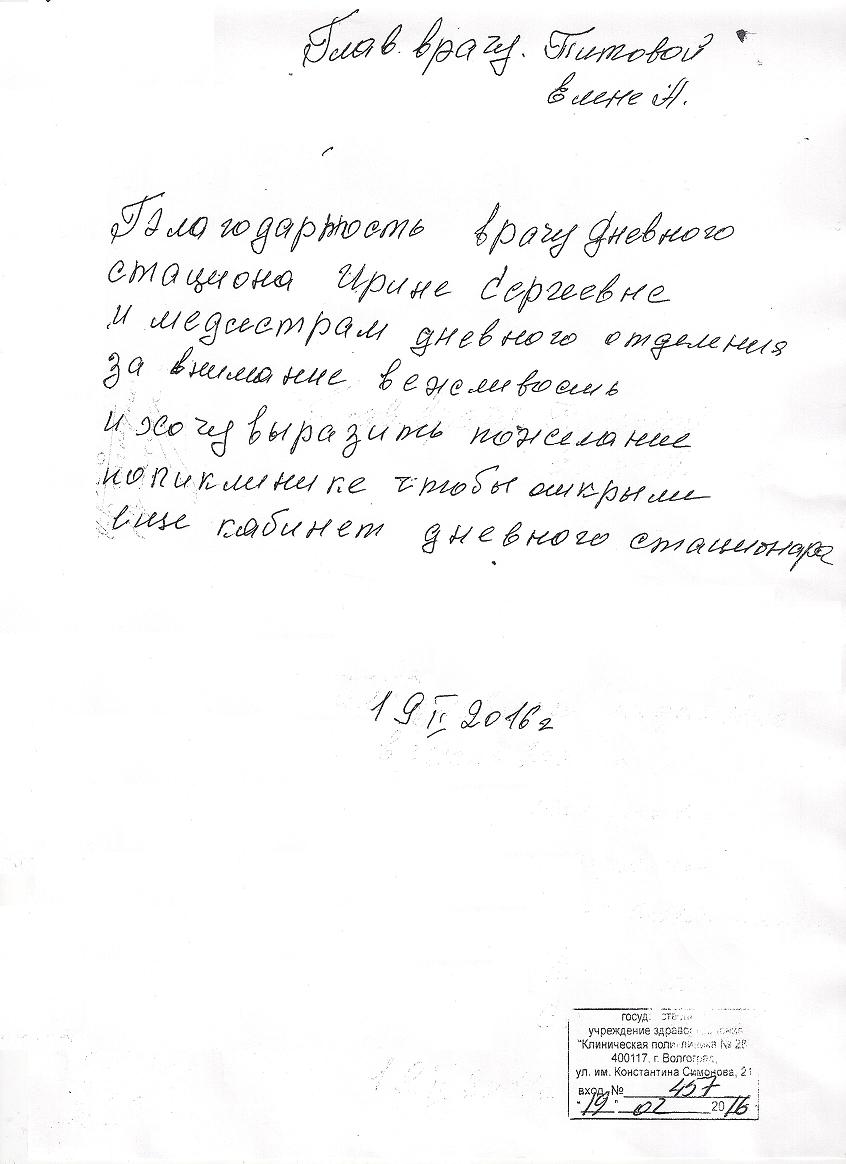 Глав. врачу. Титовой
Елене А.
Благодарность врачу дневного
стациона Ирине Сергеевне
и медсестрам дневного отделения
за внимание вежливость
и хочу выразить пожелание
попиклинике чтобы открыли
еще кабинет дневного стационара
19 II 2016 г
госуд
учреждение здравоо
"Клиническая поликлиника № 28
400117, г. Волгоград,
ул. им. Константина Симонова, 21
вход. № 457
"19" 02 2016